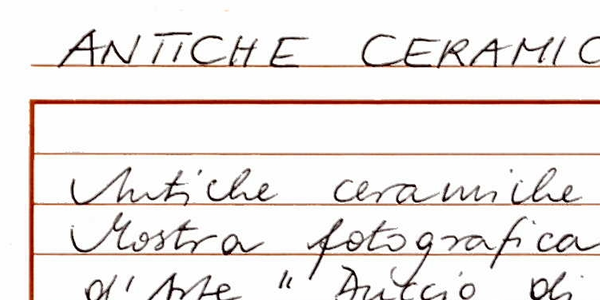 ANTICHE CERAMIC
Antiche ceramiche
Mostra fotografica
d'Arte " Duccio di